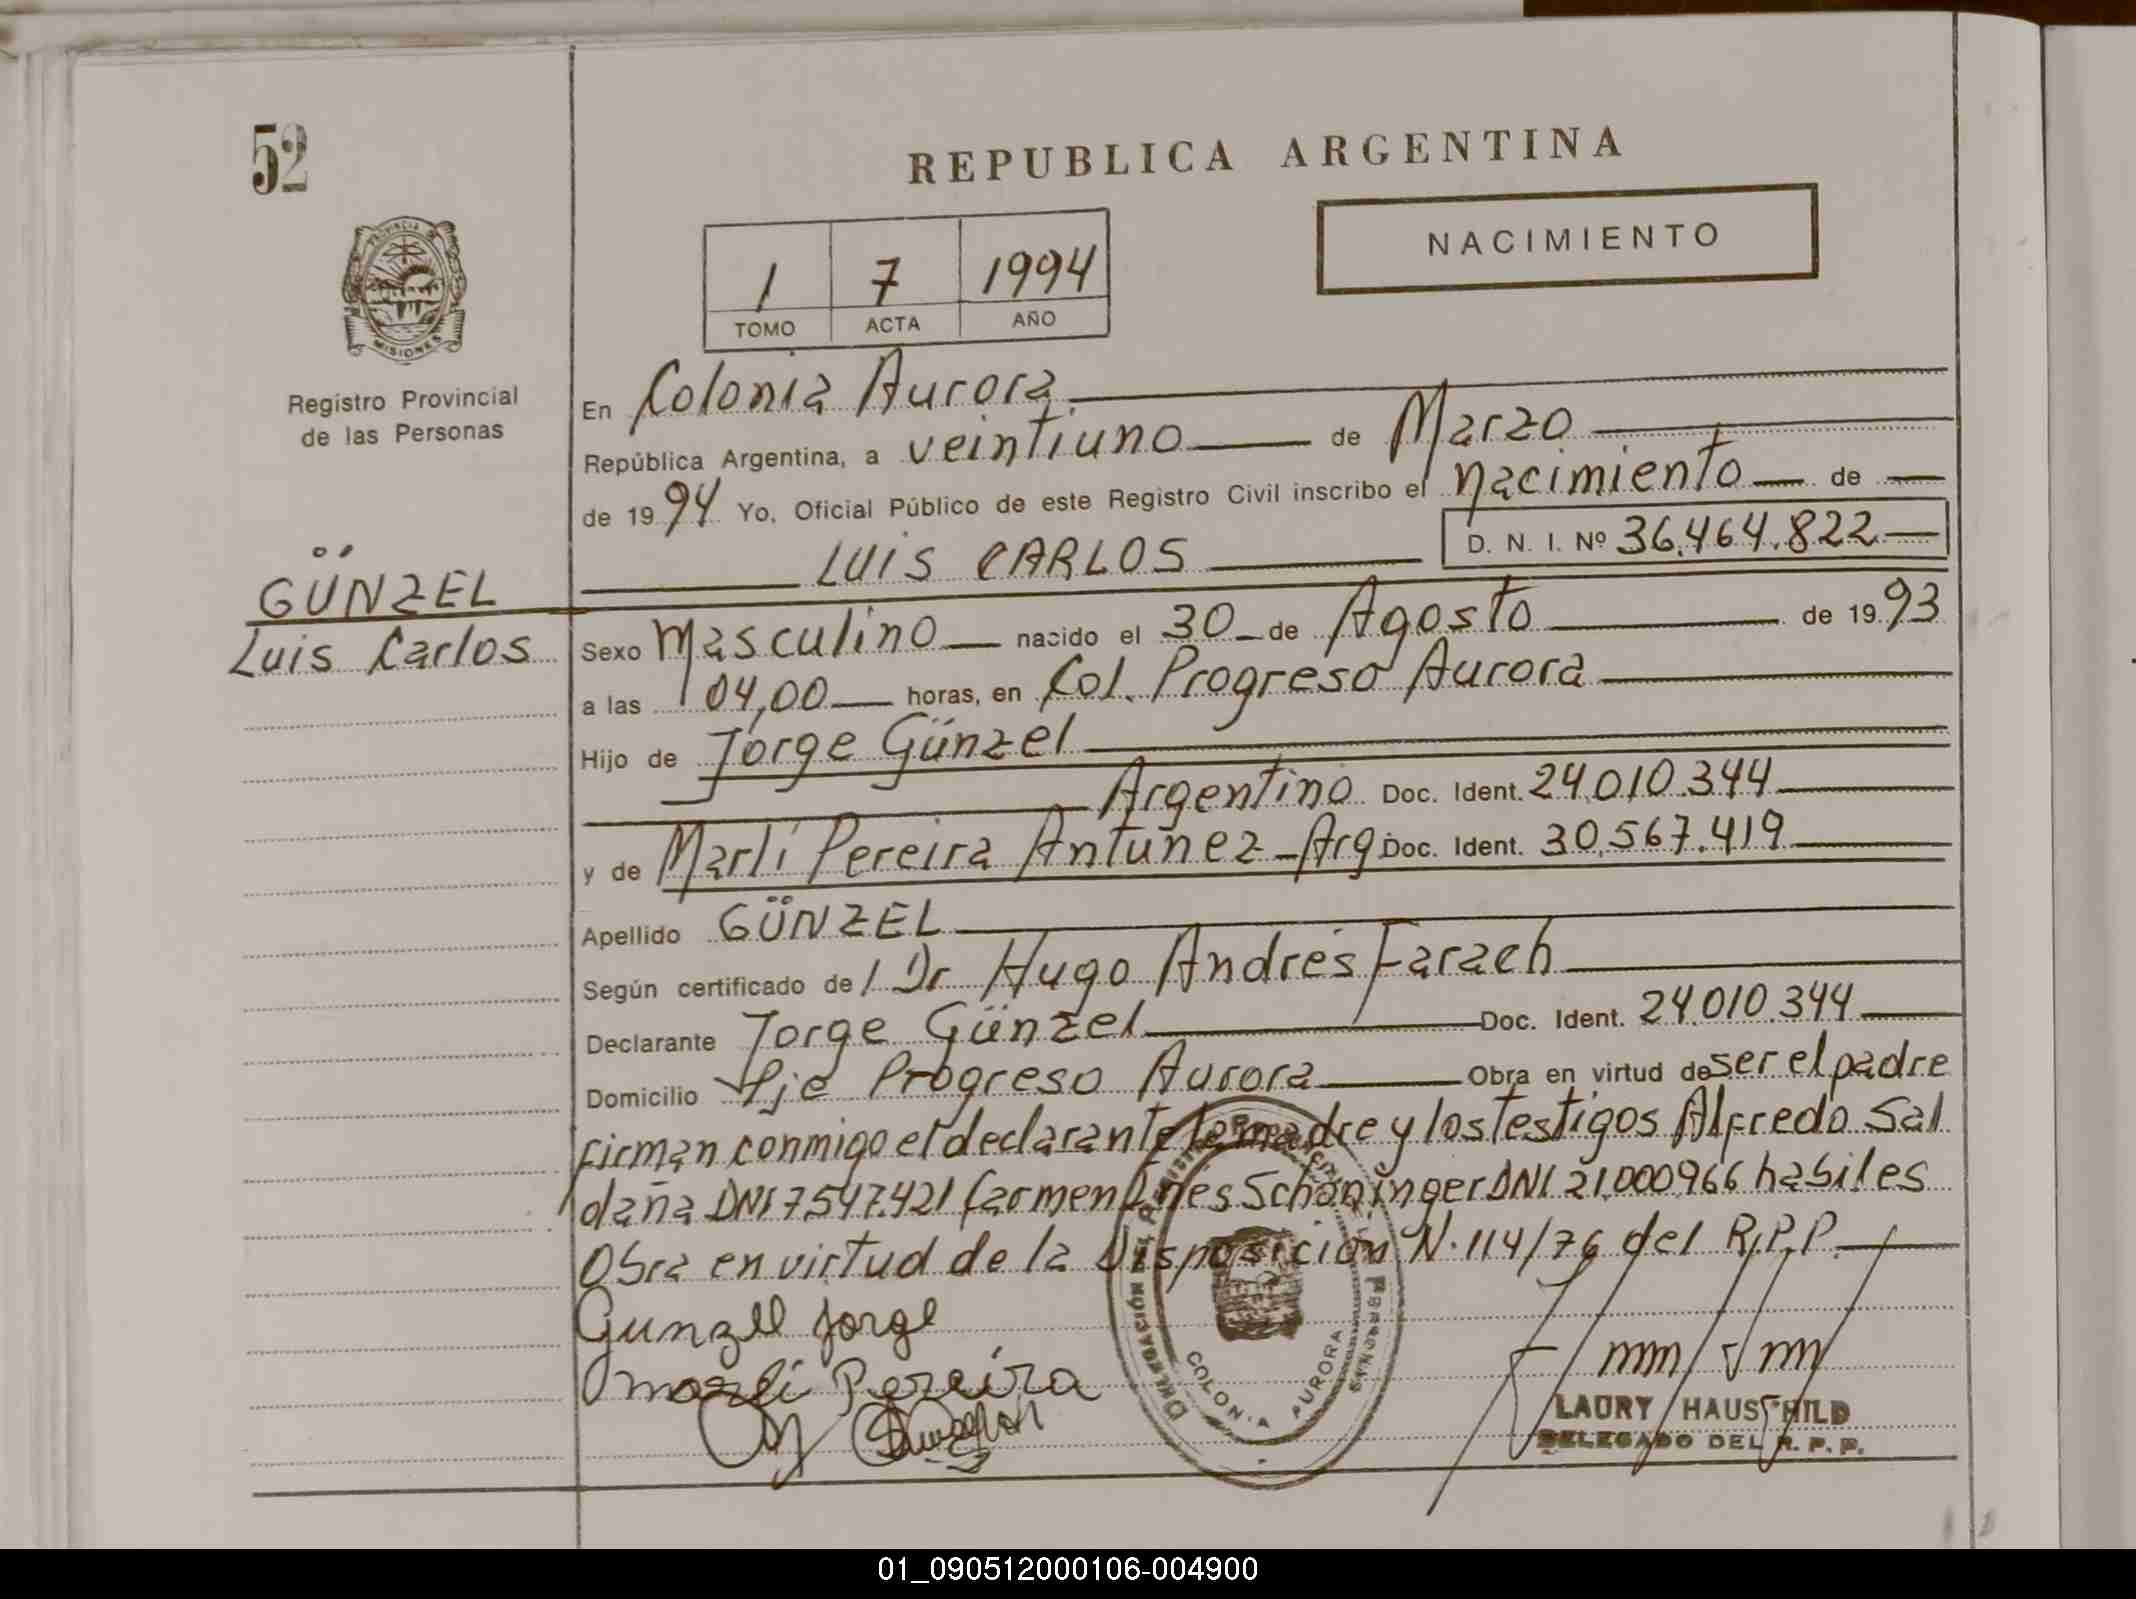 52
REPUBLICA ARGENTINA
NACIMIENTO
1 7 1994
TOMO ACTA AÑO
PROVINCIA DE
MISIONES
Registro Provincial
de las Personas
GÜNZEL
Luis Carlos
En Colonia Aurora
República Argentina, a veintiuno de Marzo
de 1994 Yo, Oficial Público de este Registro Civil inscribo el nacimiento de
LUIS CARLOS D. N. I. Nº 36.464.822
Sexo Masculino nacido el 30 de Agosto de 1993
a las 04,00 horas, en Col. Progreso Aurora
Hijo de Jorge Günzel
Argentino Doc. Ident. 24.010.344
y de Marlí Pereira Antunez Arg Doc. Ident. 30.567.419
Apellido GÜNZEL
Según certificado de Dr Hugo Andrés Farach
Declarante Jorge Günzel Doc. Ident. 24.010.344
Domicilio Pje Progreso Aurora Obra en virtud de ser el padre
firman conmigo el declarante la madre y los testigos Alfredo Sal
daña DNI 7.547.421 Carmen Ines Schöninger DNI 21.000.966 habiles
Obra en virtud de la Disposición N. 114/76 del R.P.P.
Gunzell Jorge
Marli Pereira
COLONIA AURORA
LAURY HAUSCHILD
DELEGADO DEL R. P. P.
01_090512000106-004900